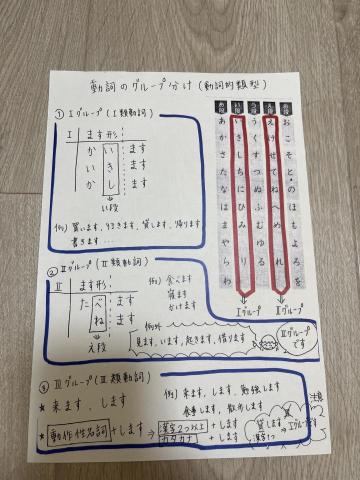 動詞のグループ分け (動詞的類型)
① Ⅰグループ (Ⅰ類動詞)
Ⅰ ます形
か い ます
い き ます
か し ます
い段
例) 買います、行きます、貸します、帰ります
書きます…
あ段 い段 う段 え段 お段
あ い う え お
か き く け こ
さ し す せ そ
た ち つ て と
な に ぬ ね の
は ひ ふ へ ほ
ま み む め も
や ゆ よ
ら り る れ ろ
わ を
Ⅰグループ Ⅱグループ
② Ⅱグループ (Ⅱ類動詞)
Ⅱ ます形
た べ ます
ね ます
え段
例) 食べます
寝ます
かけます
例外
見ます、います、起きます、借ります
Ⅱグループ
です
③ Ⅲグループ (Ⅲ類動詞)
★ 来ます、します
例) 来ます、します、勉強します
食事します、散歩します
★ 動作性名詞 + します ⇒ 漢字2つ以上 + します
カタカナ + します
注意
貸します
漢字1つ
⇒ Ⅰグループ